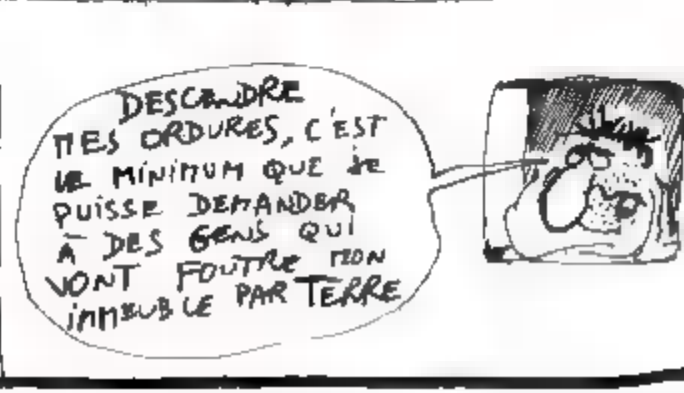 DESCENDRE
MES ORDURES, C'EST
LE MINIMUM QUE JE
PUISSE DEMANDER
À DES GENS QUI
VONT FOUTRE MON
IMMEUBLE PAR TERRE